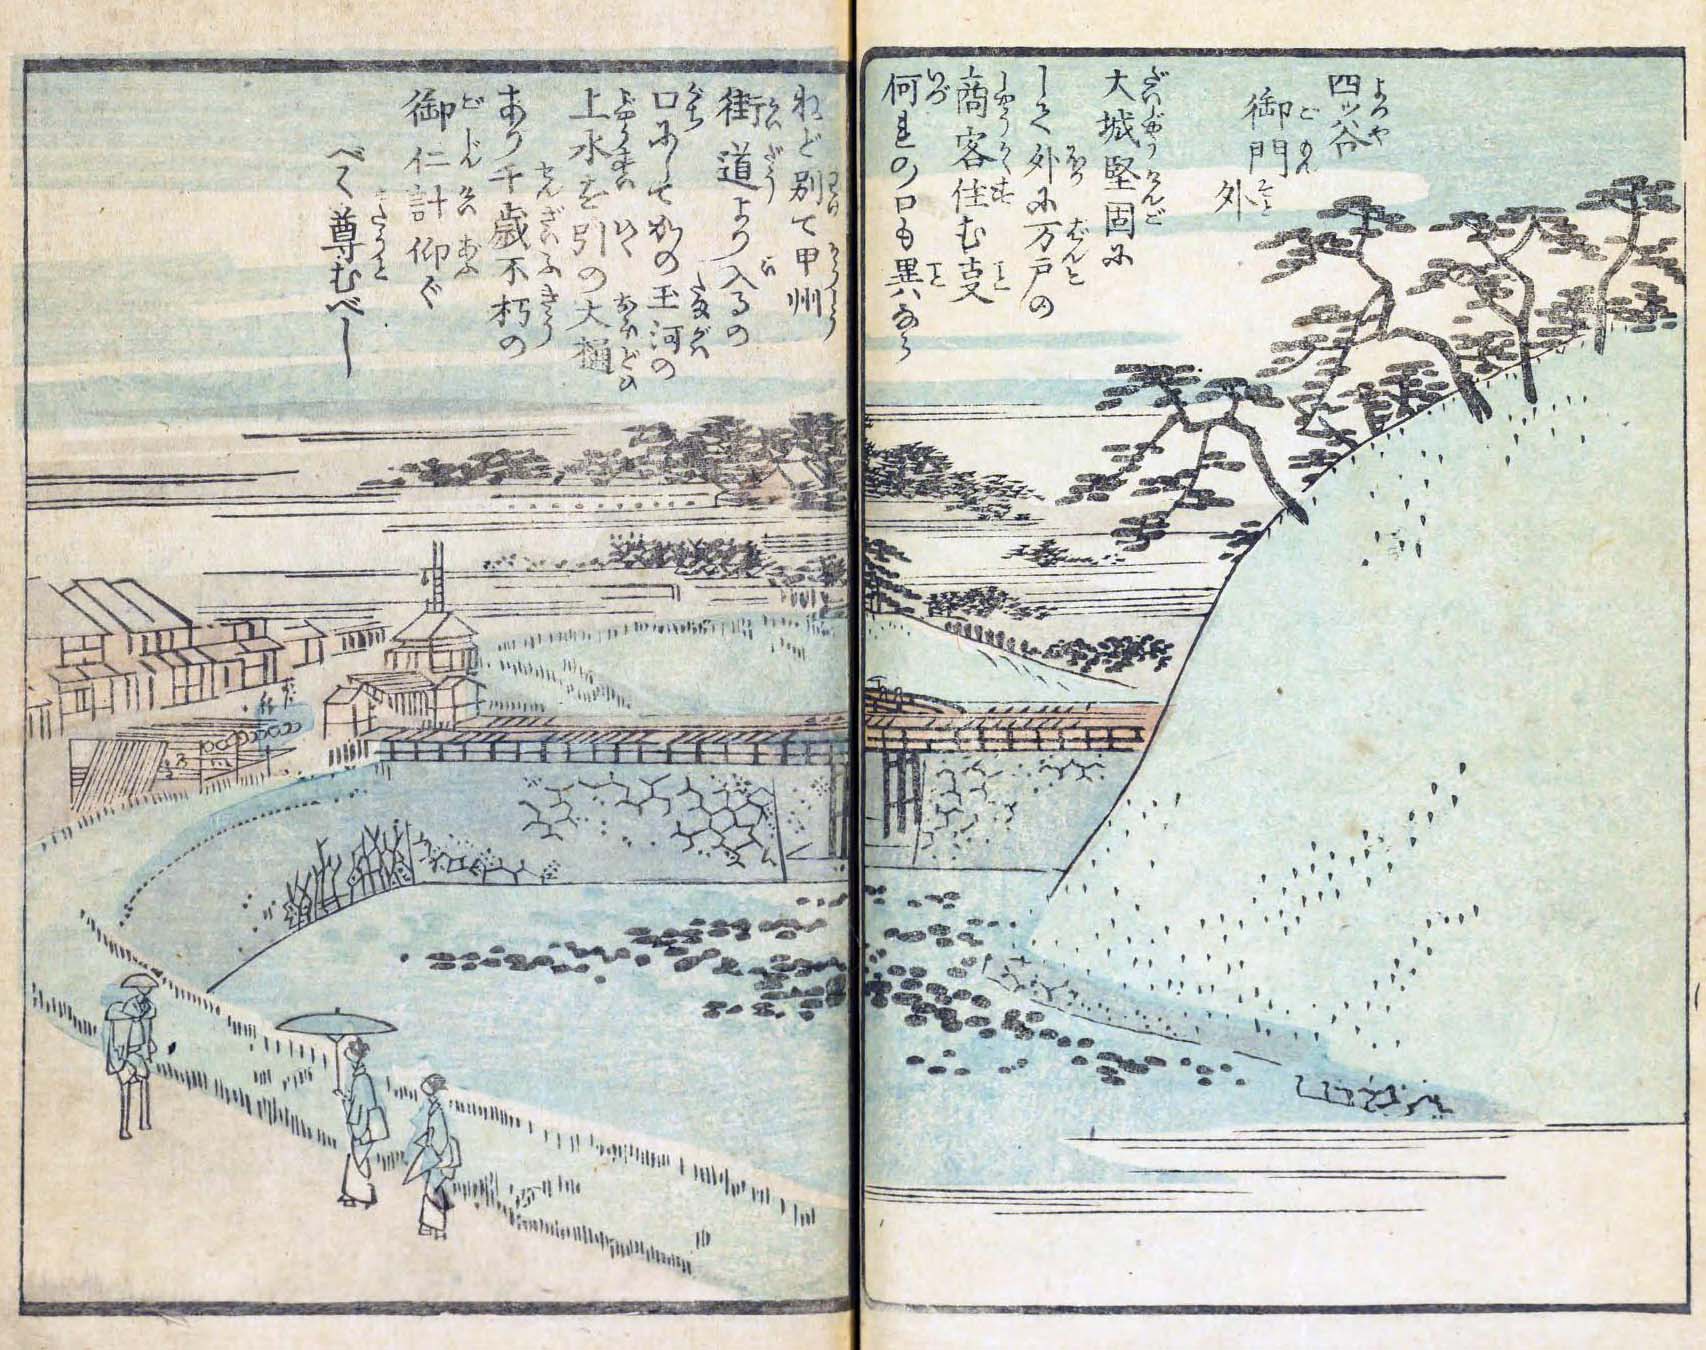 四ツ谷
御門
外
大城堅固に
して外に万戸の
商客住む支
何れの口も異ハなら
ねど別て甲州
街道より入るの
口にしてかの玉河の
上水を引の大樋
あり千歳不朽の
御仁計仰ぐ
べく尊むべし